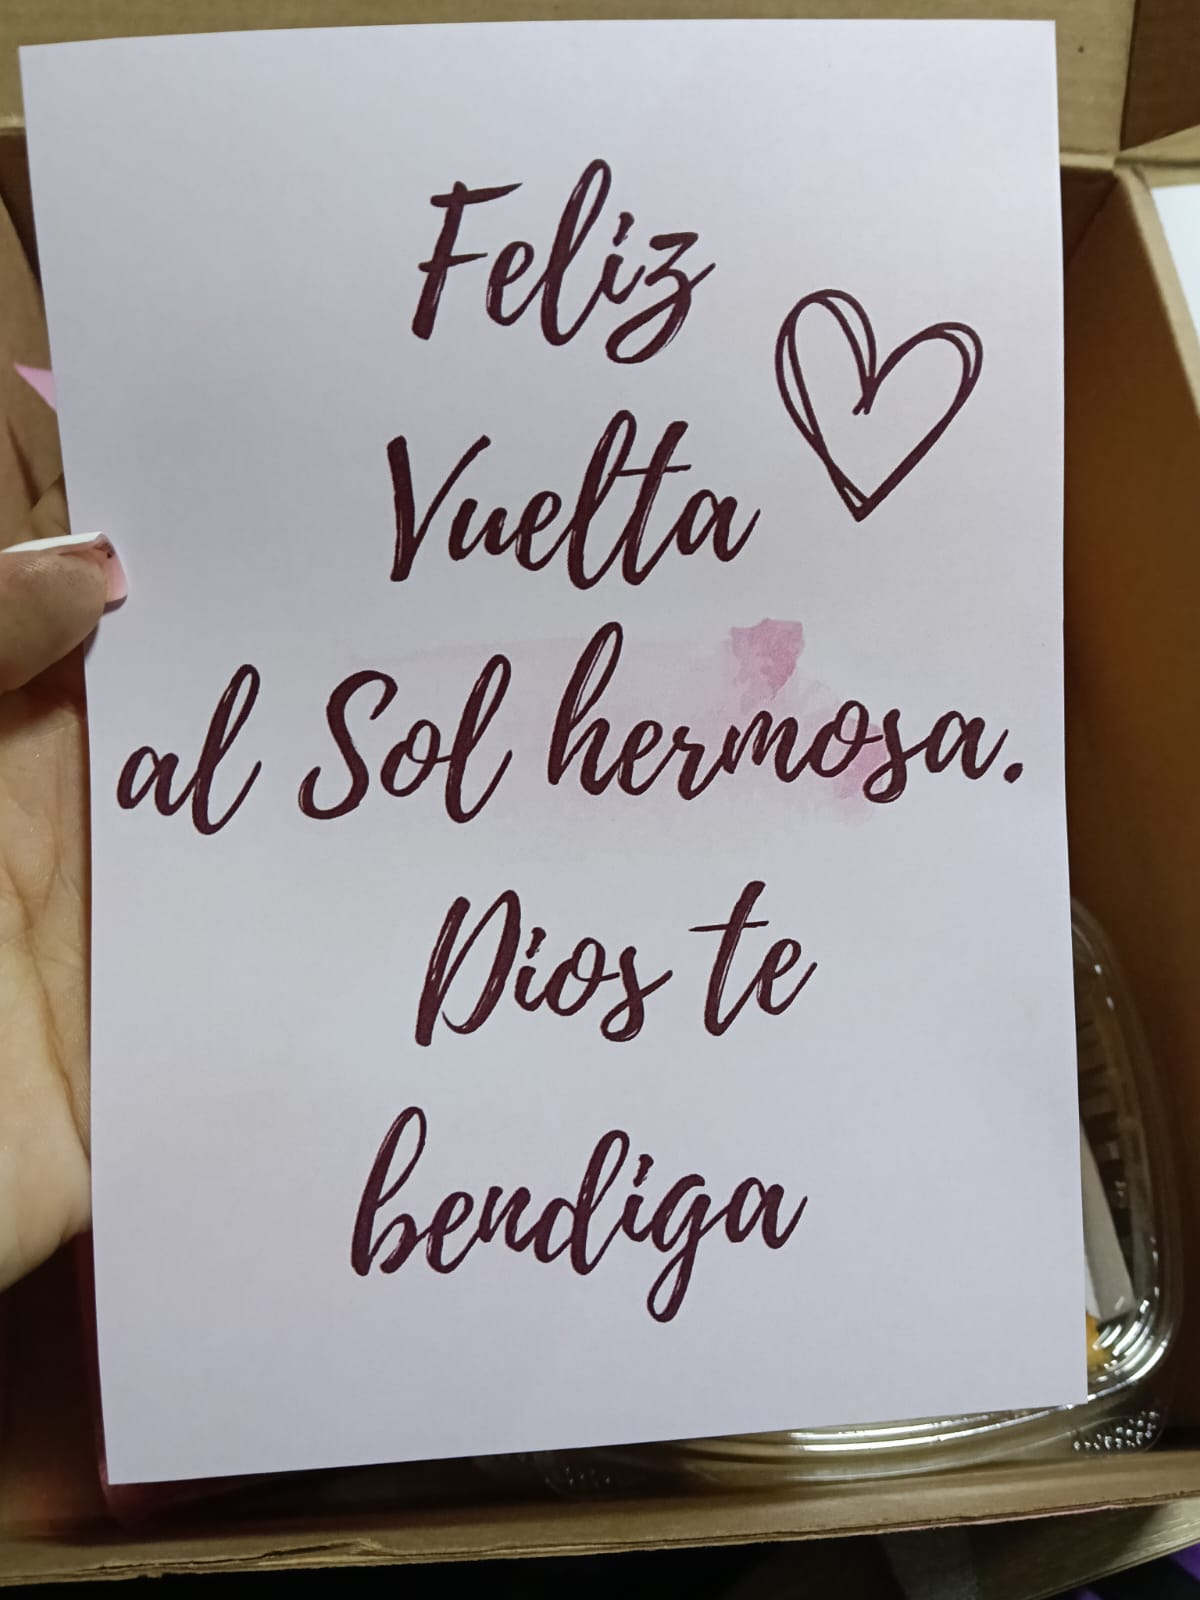 Feliz
Vuelta
al Sol hermosa.
Dios te
bendiga